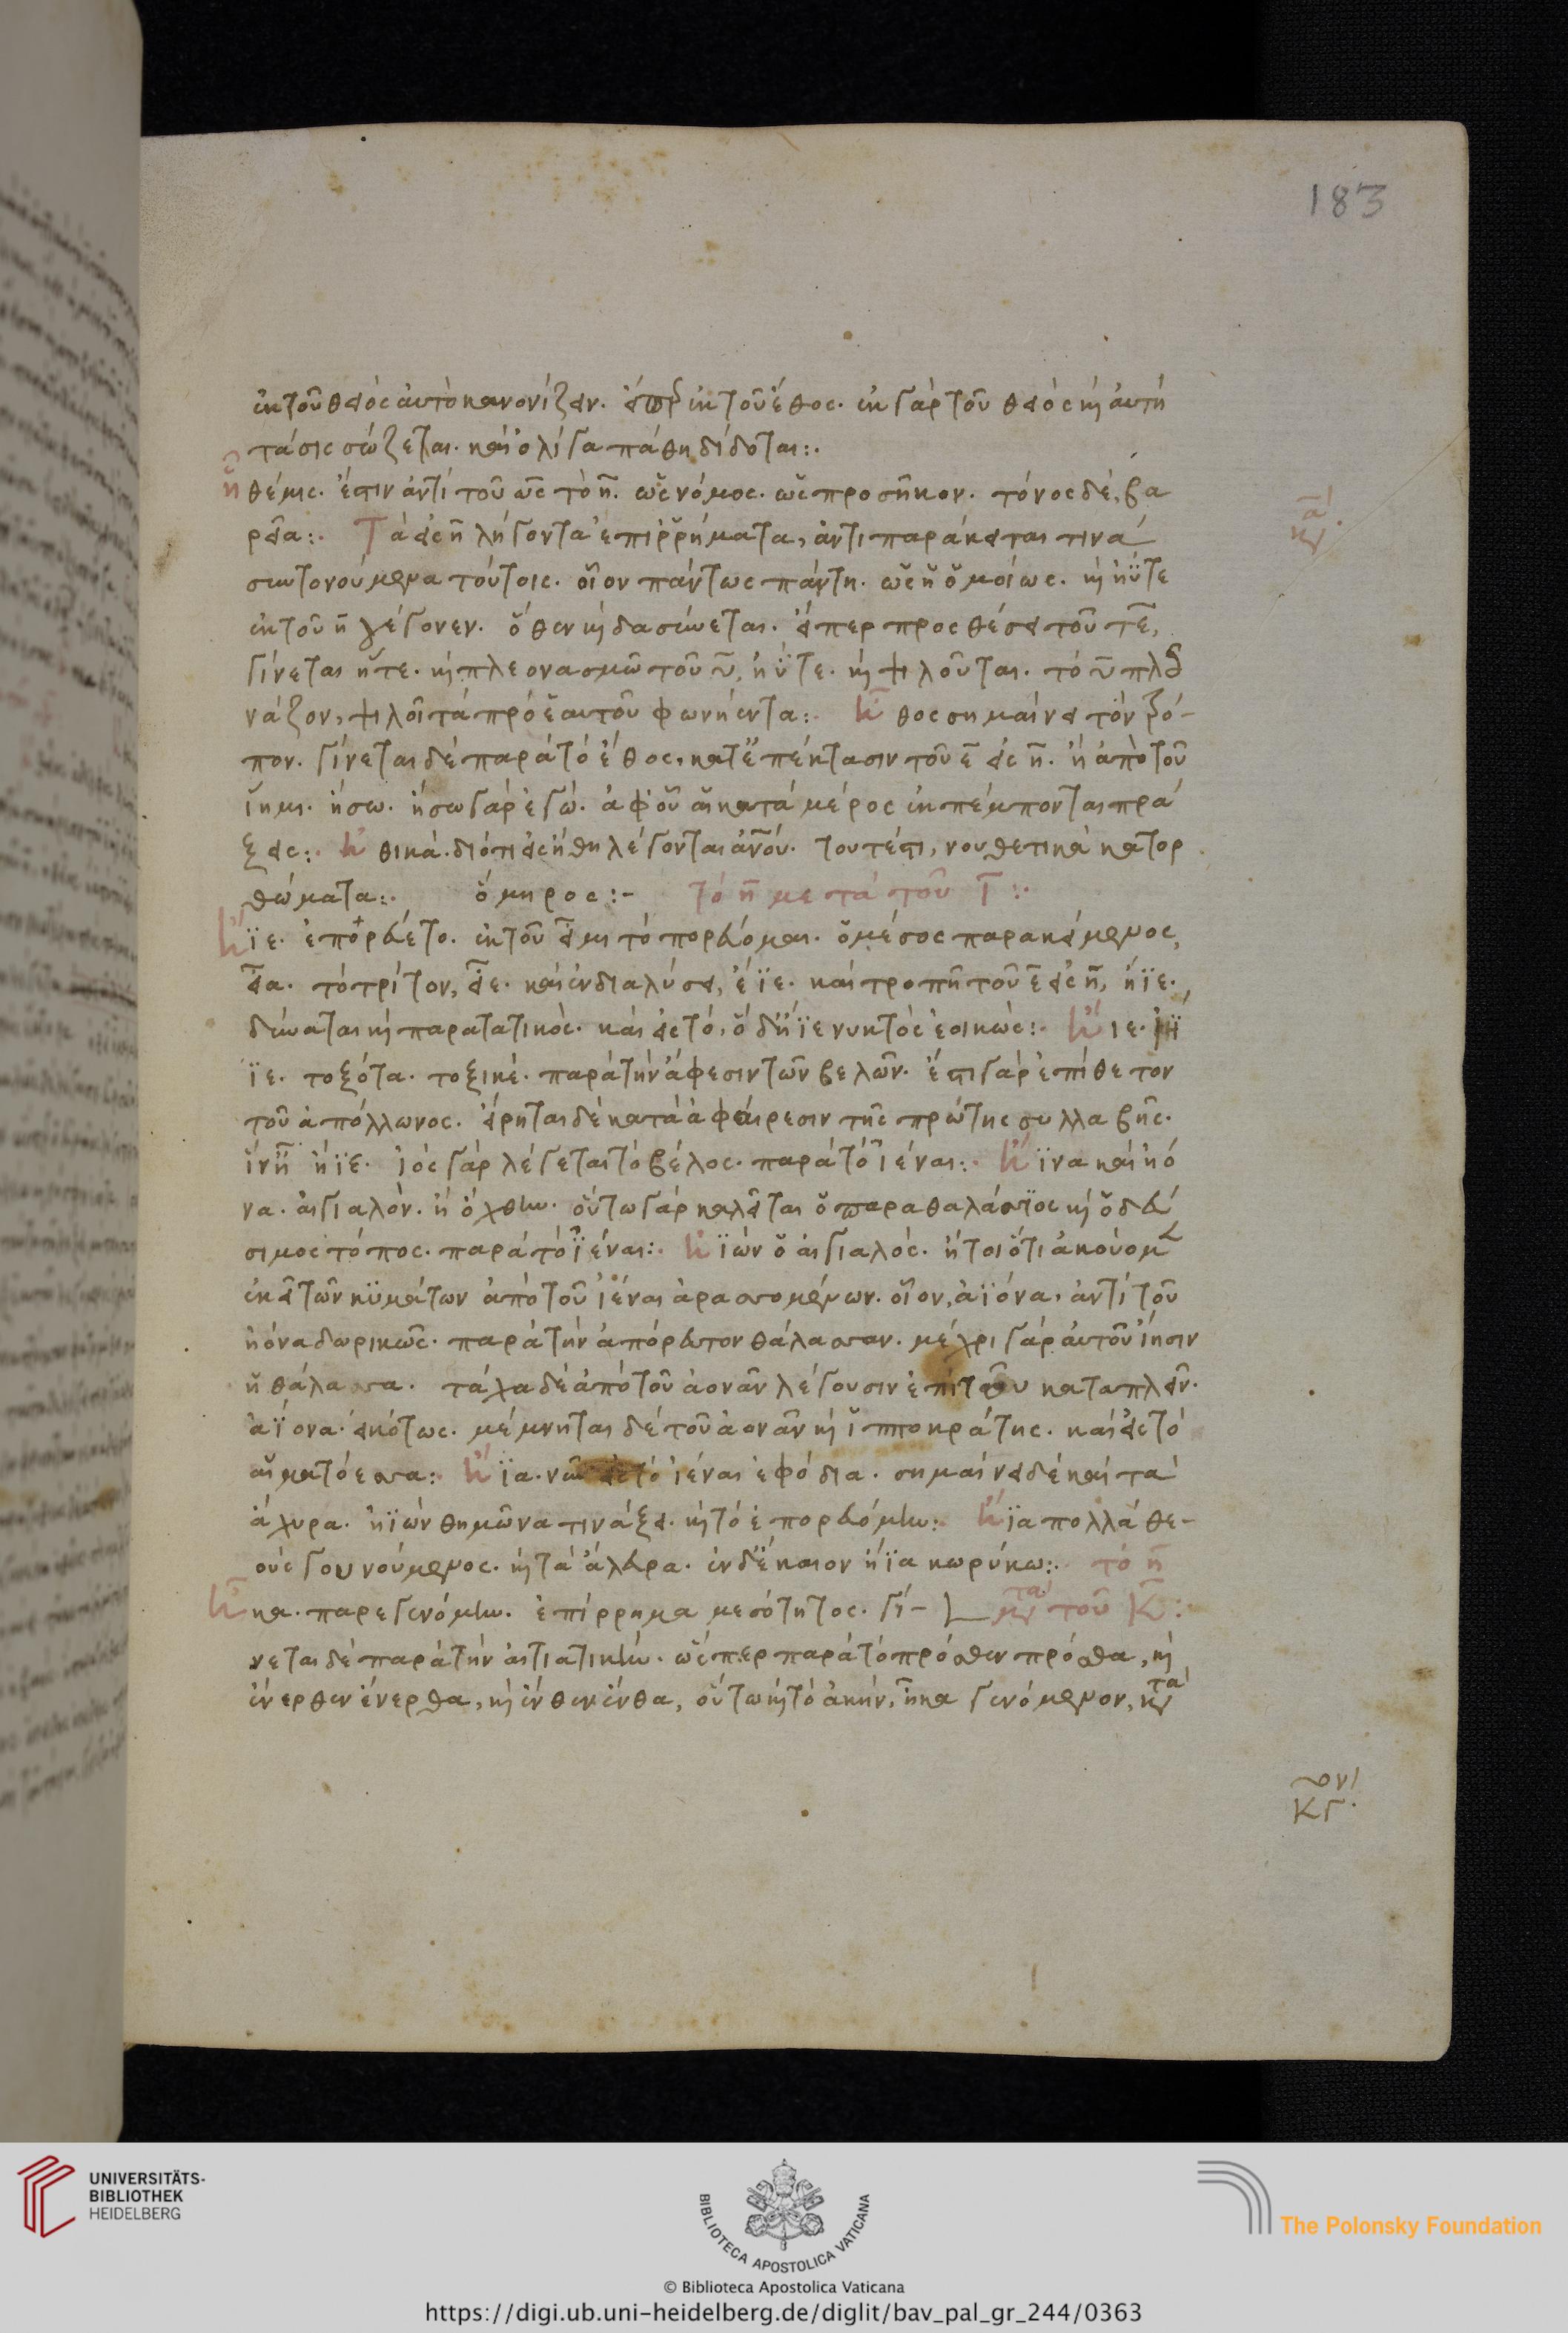 183
ἐκ τοῦ θειὸς αὐτὸ κανονίζειν. εἴπερ ἐκ τοῦ ἔθος. ἐκ γὰρ τοῦ θειὸς κ αὐτὴ
τάσις σώζεται. καὶ ὀλίγα πάθη δίδοται:.
ἣ θέμις. ἔστιν ἀντὶ τοῦ ὡς τὸ η̄. ὡς νόμος. ὡς προσῆκον. τόνος δὲ, βα
ρεῖα:. Τὰ εἰς η̄ λήγοντα ἐπιρρήματα, ἀντιπαράκειται τινὰ
συντονούμενα τούτοις. οἷον πάντως πάντη. ὡς ἣ ὁμοίως. κ ἠΰτε
ἐκ τοῦ η̄ γέγονεν. ὅθεν κ δασύνεται. εἴπερ προσθέσει τοῦ τε̄,
γίνεται ἧτε. κ πλεονασμῶ τοῦ ῡ, ἠΰτε. κ ψιλοῦται. τὸ ῡ πλεο
νάζον, ψιλοῖ τὰ πρὸ ἑαυτοῦ φωνήεντα:. Ἦθος σημαίνει τὸν τρό-
πον. γίνεται δὲ παρὰ τὸ ἔθος, κατ' ἐπέκτασιν τοῦ ε̄ εἰς η̄. ἢ ἀπὸ τοῦ
ἵημι. ἥσω. ἥσω γὰρ ἐγώ. ἀφ' οὗ αἱ κατὰ μέρος ἐκπέμπονται πρά
ξεις:. Ἠθικά. διότι εἰς ἤθη λέγονται ἀν̄ου. τουτέστι, νουθετικὰ κατορ
θώματα:. ὅμηρος:- τὸ η̄ μετὰ τοῦ ῑ:.
Ἤϊε. ἐπορεύετο. ἐκ τοῦ εἶμι τὸ πορεύομαι. ὁ μέσος παρακείμενος,
εἶα. τὸ τρίτον, εἶε. καὶ ἐν διαλύσει, ἔϊε. καὶ τροπῆ τοῦ ε̄ εἰς η̄, ἤϊε.
δύναται κ παρατατικὸς. καὶ εἰς τό, ὁ δ' ἤϊε νυκτὸς ἐοικώς:. Ἤιε.
ϊε. τοξότα. τοξικέ. παρὰ τὴν ἄφεσιν τῶν βελῶν. ἔστι γὰρ ἐπίθετον
τοῦ ἀπόλλωνος. εἴρηται δὲ κατὰ ἀφαίρεσιν τῆς πρώτης συλλαβῆς.
ἵν' ᾖ ἤϊε. ἰὸς γὰρ λέγεται τὸ βέλος. παρὰ τὸ ἰέναι:. Ἤϊνα καὶ ἠό
να. αἰγιαλόν. ἢ ὄχθην. οὕτω γὰρ καλεῖται ὁ παραθαλάσσϊος κ ὁδεύ
σιμος τόπος. παρὰ τὸ ἰέναι:. Ἠϊὼν ὁ αἰγιαλός. ἤτοι ὅτι ἀκούομεν
ἐκεῖ τῶν κϋμάτων ἀπὸ τοῦ ἰέναι ἀρασσομένων. οἷον, ἀϊόνα, ἀντὶ τοῦ
ἠόνα δωρικῶς. παρὰ τὴν ἀπόρευτον θάλασσαν. μέχρι γὰρ αὐτοῦ ἵησιν
ἡ θάλασσα. τάχα δὲ ἀπὸ τοῦ ἀονᾶν λέγουσιν ἐπὶ τοῦ καταπλεῖν.
ἀϊονα. εἰκότως. μέμνηται δὲ τοῦ ἀονᾶν κ ἱπποκράτης. καὶ εἰς τὸ
αἱματόεσσα: Ἤϊα. νῦν εἰς τὸ ἰέναι ἐφόδια. σημαίνει δὲ καὶ τὰ
ἄχυρα. ἠϊὼν θημῶνα τινάξει. κ τὸ ἐπορευόμην: Ἤϊα πολλὰ θε-
οὺς γουνούμενος. κ τὰ ἄλευρα. ἐν δ' ἔκαιον ἤϊα κωρύκω:. τὸ η̄
Ἦκα. παρεγενόμην. ἐπίρρημα μεσότητος. γί- μετὰ τοῦ κ̄:
νεται δὲ παρὰ τὴν αἰτιατικήν. ὥσπερ παρὰ τὸ πρόσθεν πρόσθα, κ
ἔνερθεν ἔνερθα, κ ἔνθεν ἔνθα, οὕτω κ τὸ ἀκήν, ἦκα γενόμενον, κατὰ
κγ.
UNIVERSITÄTS-
BIBLIOTHEK
HEIDELBERG
BIBLIOTECA APOSTOLICA VATICANA
The Polonsky Foundation
© Biblioteca Apostolica Vaticana
https://digi.ub.uni-heidelberg.de/diglit/bav_pal_gr_244/0363